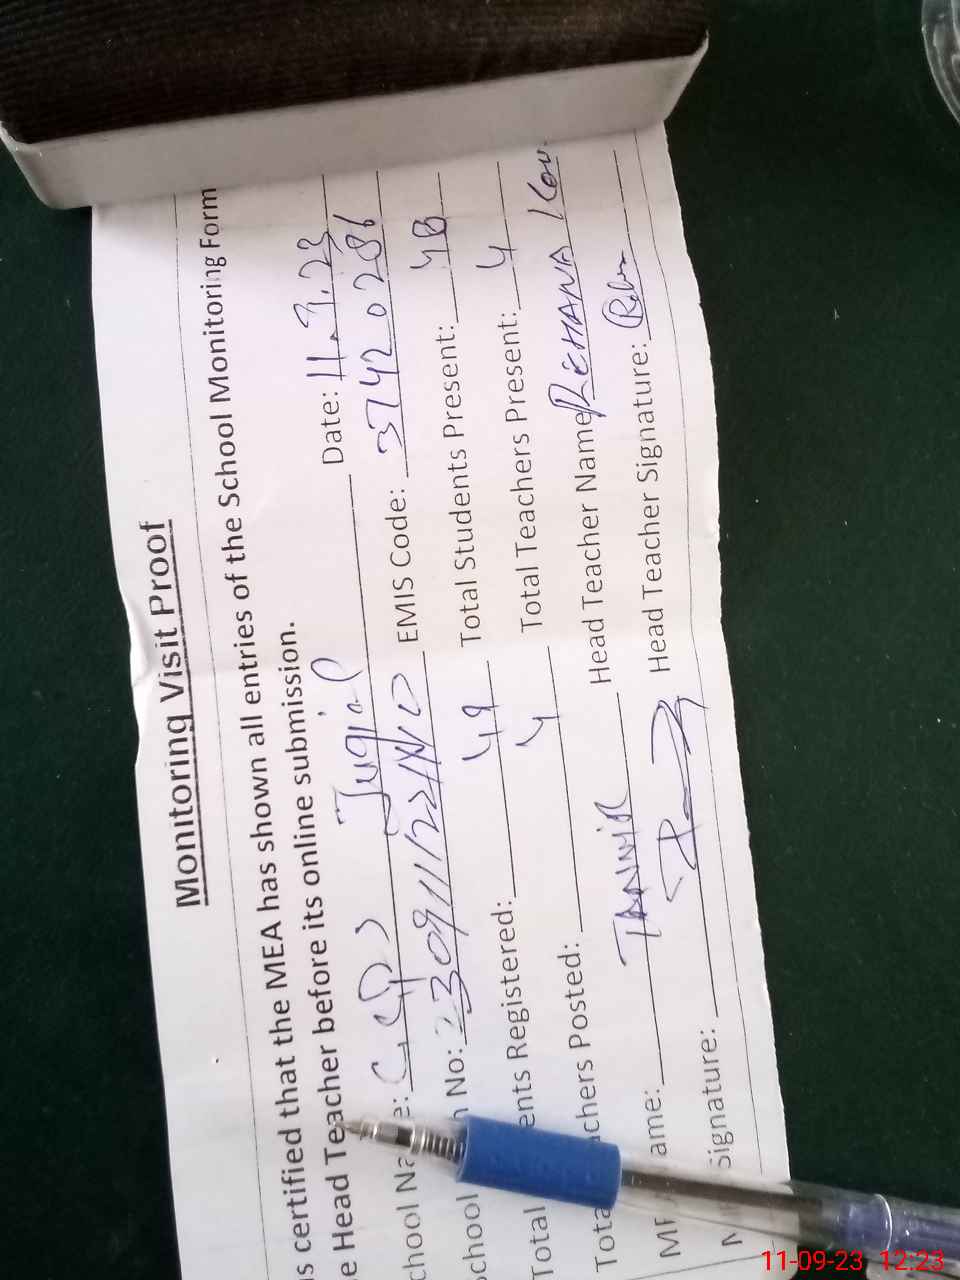 Monitoring Visit Proof
s certified that the MEA has shown all entries of the School Monitoring Form
e Head Teacher before its online submission.
chool Na e: GGPS Jugial Date: 11.9.23
School n No: EMIS Code: 37420286
Total ents Registered: 49 Total Students Present: 48
Tota chers Posted: 4 Total Teachers Present: 4
ame: TANVIR Head Teacher Name REHANA Kou
Signature: Head Teacher Signature:
11-09-23 12:23